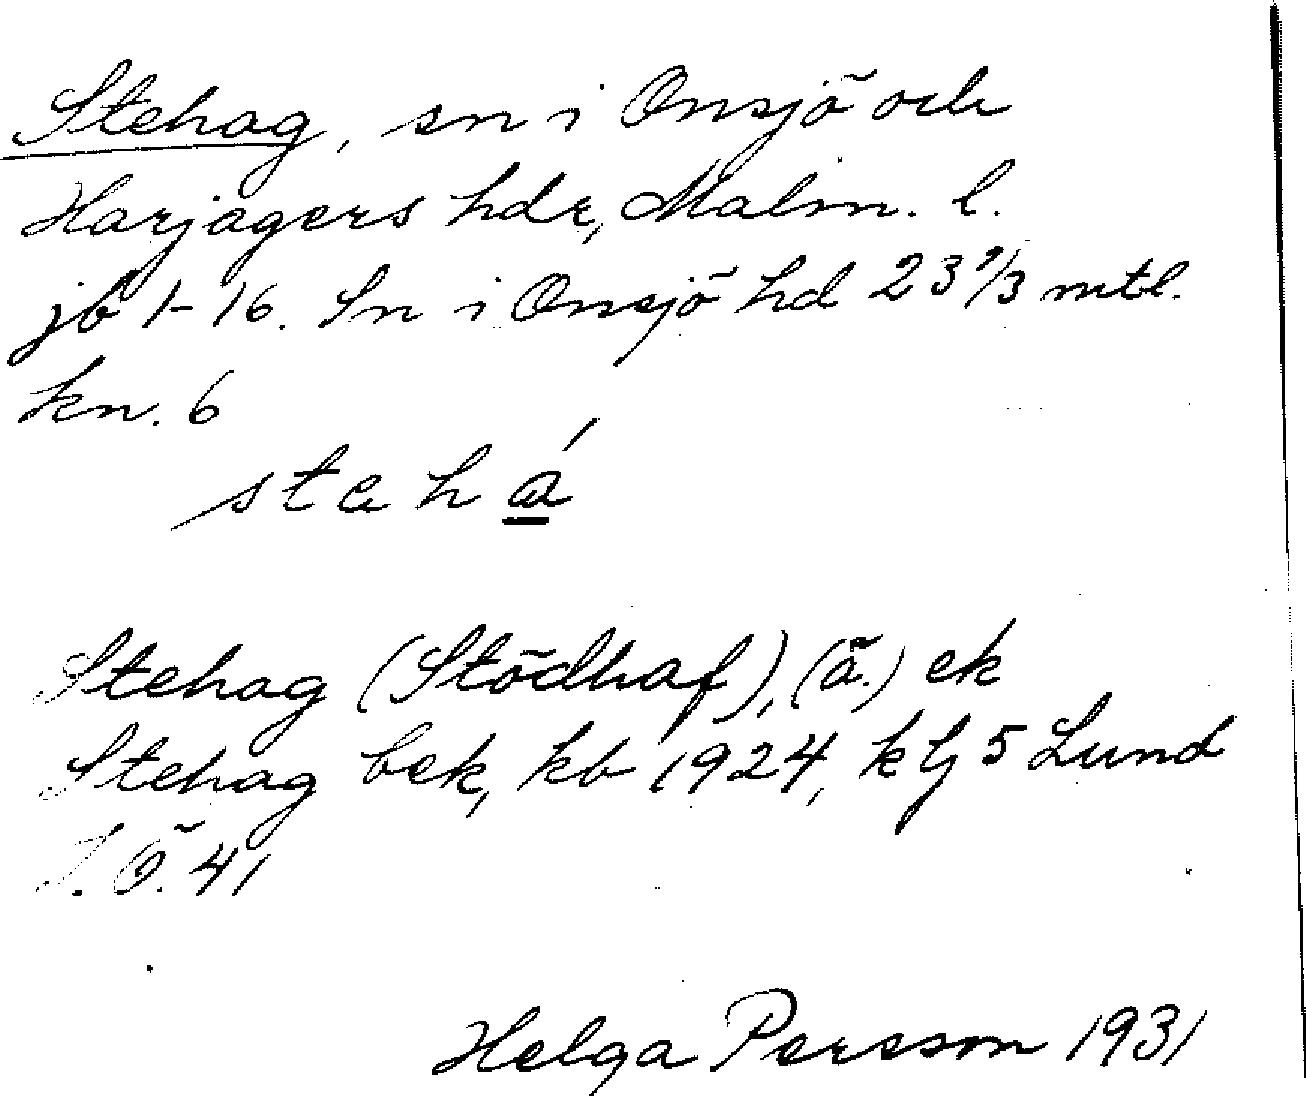 Stehag, sn i Onsjö och
Harjagers hdr, Malm. l.
jb 1-16. Sn i Onsjö hd 23 1/3 mtl.
kn. 6
stahá
Stehag (Stödhaf), (ä.) ek
Stehag bek, kb 1924, klj 5 Lund
Ö. 41
Helga Persson 1931